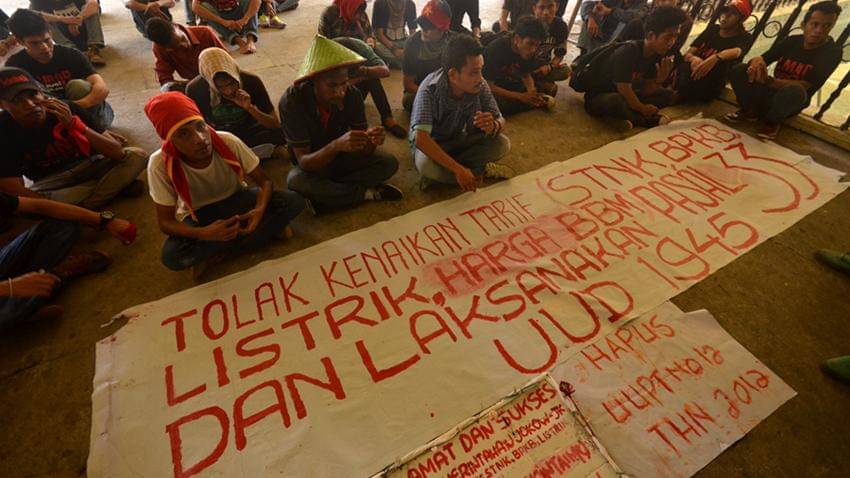 TOLAK KENAIKAN TARIF (STNK BPKB
LISTRIK, HARGA BBM
DAN LAKSANAKAN PASAL 33
UUD 1945
HAPUS
UUPT No 12
THN 2012
AMAT DAN SUKSES
JOKOWI-JK
STNK, BPKB, LISTRIK